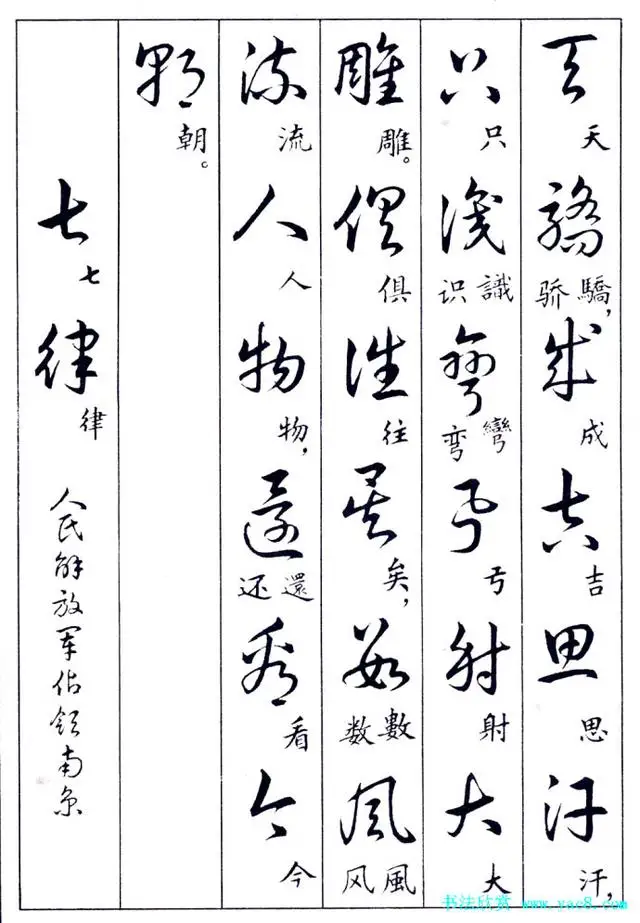 天驕成吉思汗
天驕，骄成吉思汗，
只識彎弓射大
只識识彎弯弓射大
雕俱往矣數風
雕。俱往矣，數数風风
流人物還看今
流人物，還还看今
朝
朝。
七律
七律
人民解放军佔领南京
书法欣赏 www.yac8.com